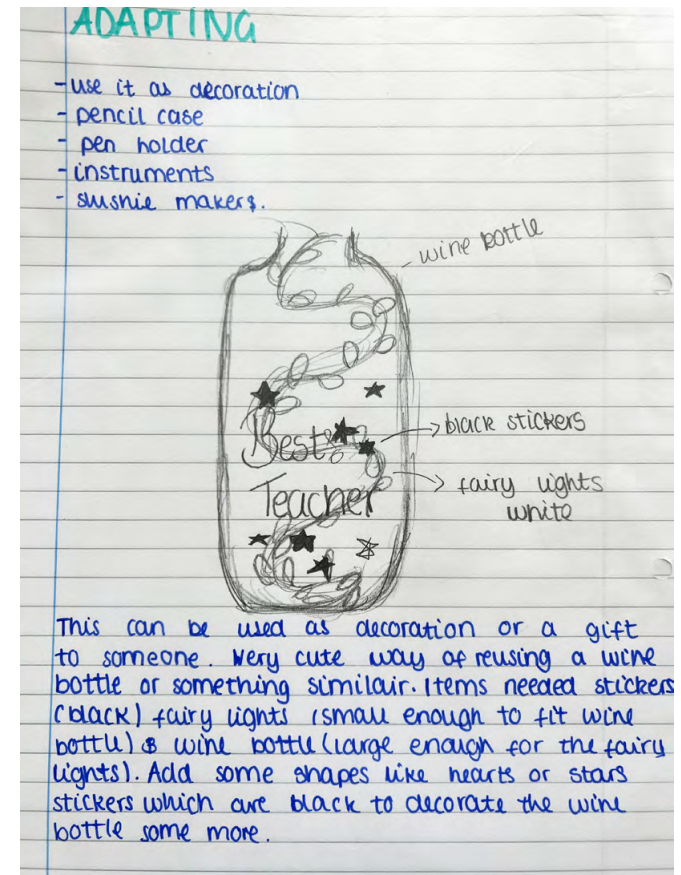 ADAPTING
- use it as decoration
- pencil case
- pen holder
- instruments
- slushie makers.
- wine bottle
Best
black stickers
Teacher
fairy lights
white
This can be used as decoration or a gift
to someone. Very cute way of reusing a wine
bottle or something similair. Items needed stickers
(black) fairy lights (small enough to fit wine
bottle) & wine bottle (large enough for the fairy
lights). Add some shapes like hearts or stars
stickers which are black to decorate the wine
bottle some more.